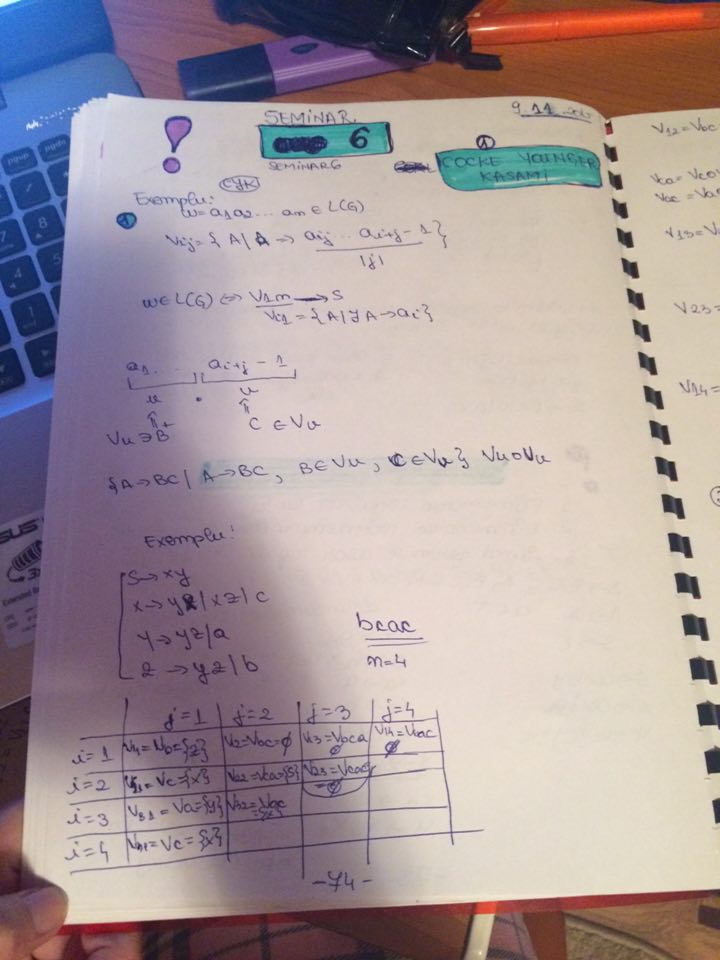 SEMINAR
6
SEMINAR 6
9.11.
1
COCKE YOUNGER
KASAMI
CYK
Exemplu:
1
w=a1a2... an ∈ L(G)
Vij={ A/A => aij ... ai+j-1 }
|j|
w∈L(G) <=> V1n → S
Vi1 = {A/∃ A→ai}
a1... ai+j-1
u . v
Vu ∋ B C ∈ Vv
{A→BC / A→BC, B∈Vu, C∈Vv} Vu o Vv
Exemplu:
S→xy
x→yz|xz|c
y→yz|a
z→yz|b
bcac
n=4
j=1 j=2 j=3 j=4
i=1 V11=Vb={z} V2=Vbc=∅ V13=Vbca ∅ V14=Vbcac ∅
i=2 V21=Vc={x} V22=Vca={S} V23=Vcac =∅
i=3 V31=Va={y} V32=Vac
i=4 V41=Vc={x}
-74-
V12=Vbc
Vca=Vcov
Vac=Va
V13=V
V23=
V14=
2
ASUS
pgup
pgdn
7
8
9